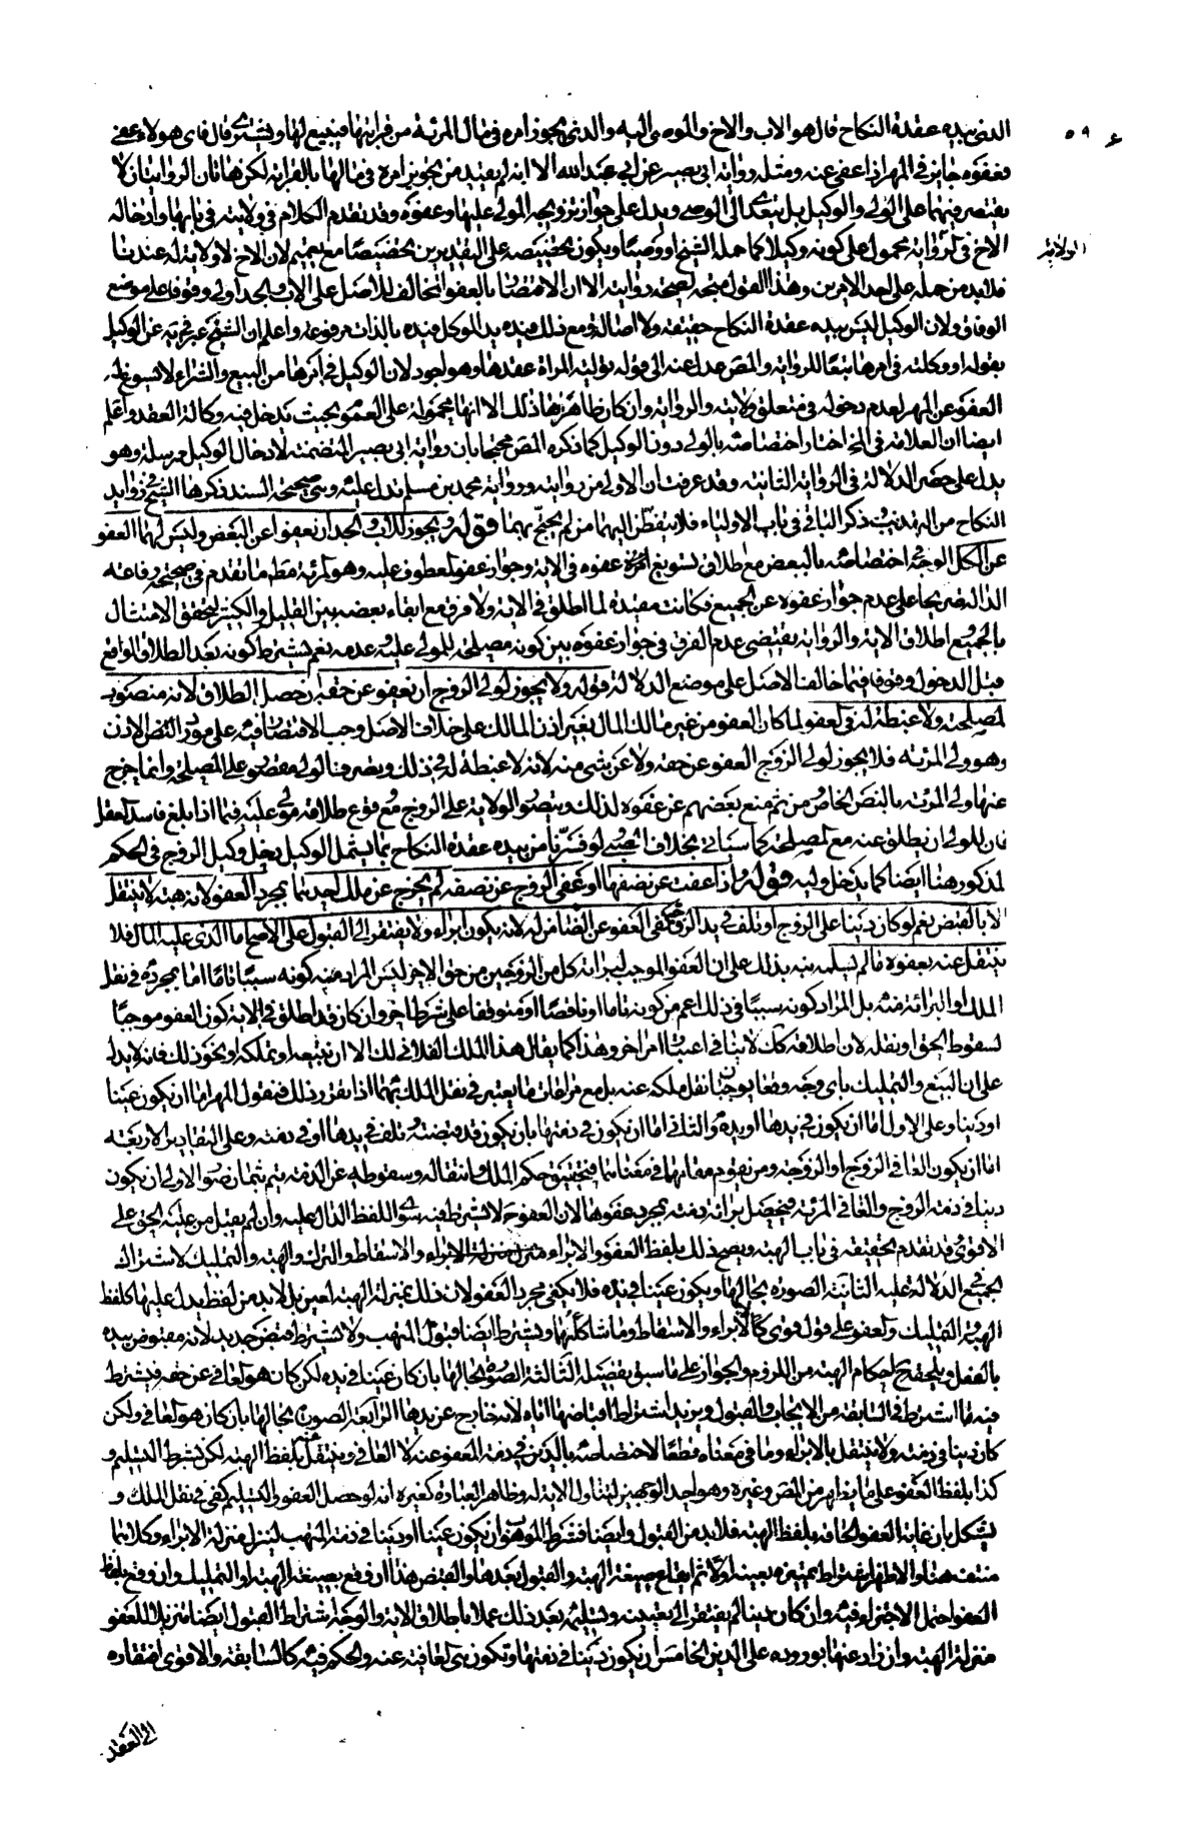 الذي بيده عقدة النكاح قال هو الاب والاخ والموصى اليه والذي يجوز امره في مال المرئة من قرابتها فيبيع لها ويشترى قال فاى هولاء عفى
فعفوه جايز في المهر اذا عفى عنه ومثله رواية ابى بصير عن ابي عبد الله الا انه لم يقيد من يجوز امره في مالها بالقرابة لكن هاتان الروايتان لا
يقتصر فيهما على الولى والوكيل بل يتعدى الى الوصى ويدل على جواز تزويجه المولى عليها وعفوه وقد تقدم الكلام في ولايته في بابها وادخاله
الاخ في الرواية محمول على كونه وكيلا كما حمله الشيخ او وصيا ويكون تخصيصه على التقديرين تخصيصا مع تعميم لان الاخ لا ولاية له عندنا
فلابد من حمله على احد الامرين وهذا القول متجه لصحة روايته الا ان الاقتصار بالعفو المخالف للاصل على الاب والجد اولى وقوفا على موضع
الوفاق ولان الوكيل ليس بيده عقدة النكاح حقيقة ولا اصالة ومع ذلك فيده يد الموكل فيده بالذات مرفوعة واعلم ان الشيخ عبر في يه عن الوكيل
بقوله او وكلته في امرها تبعا للرواية والمص عدل عنه الى قوله توليه المراة عقدها وهو اجود لان الوكيل في امرها من البيع والشراء لا يسوغ له
العفو عن المهر لعدم دخوله في متعلق ولايته والرواية وان كان ظاهرها ذلك الا انها محمولة على العموم بحيث يدخل فيه وكالة العقد واعلم
ايضا ان العلامة في المخ اختار اختصاصه بالولى دون الوكيل كما ذكره المص محتجا بان رواية ابى بصير المتضمنة لادخال الوكيل مرسلة وهو
يدل على حصر الدلالة في الرواية الثانية وقد عرفت ان الاولى من روايته ورواية محمد بن مسلم تدل عليه وهى صحيحة السند ذكرها الشيخ في زوايد
النكاح من التهذيب وذكر الباقى في باب الاولياء فلا يتفطن اليهما من لم يحتج بهما قوله ويجوز للاب والجد ان يعفوا عن البعض وليس لهما العفو
عن الكل الوجه في اختصاصه بالبعض مع اطلاق تسويغ عفوه في الاية وجواز عفو المعطوف عليه وهو المرئة مطلقا ما تقدم في صحيحة رفاعة
الدالة صريحا على عدم جواز عفوه عن الجميع فكانت مقيدة لما اطلق في الاية ولا فرق مع ابقاء بعضه بين القليل والكثير لتحقق الامتثال
بالجميع واطلاق الاية والرواية يقتضى عدم الفرق في جواز عفوه بين كونه مصلحة للمولى عليه وعدمه نعم يشترط كونه بعد الطلاق الواقع
قبل الدخول وقوفا فيما خالف الاصل على موضع الدلالة قوله ولا يجوز لولى الزوج ان يعفو عن حقه ان حصل الطلاق لانه منصوب
لمصلحته ولا غبطة له في العفو لما كان العفو من غير مالك المال بغير اذن المالك على خلاف الاصل وجب الاقتصار فيه على مورد النص الاذن
وهو ولى المرئة فلا يجوز لولى الزوج العفو عن حقه ولا عن شى منه لانه لا غبطة له في ذلك وتصرفات الولى مقصور على المصلحة وانما خرج
عنها ولى المرئة بالنص الخاص ومن ثم منع بعضهم عن عفوه لذلك ويتصور الولاية على الزوج مع وقوع طلاقه مولى عليه فيما اذا بلغ فاسد العقل
فان للولى ان يطلق عنه مع المصلحة كما سياتى بخلاف الصبى لو فسرنا من بيده عقدة النكاح بما يشمل الوكيل دخل وكيل الزوج في الحكم
المذكور هنا ايضا كما يدخل وليه قوله واذا عفت عن نصفها او عفى الزوج عن نصفه لم يخرج عن ملك احدهما بمجرد العفو لانه هبة لا ينتقل
الا بالقبض نعم لو كان دينا على الزوج او تلف في يد الزوجة كفى العفو عن الضامن له لانه يكون ابراء ولا يفتقر الى القبول على الاصح اما الذى عليه المال فلا
ينتقل عنه بعفوه ما لم يسلمه نبه بذلك على ان العفو الموجب لبراءة كل من الزوجين من حق الاخر ليس المراد منه كونه سببا تاما اما بمجرده في نقل
الملك او البرائة منه بل المراد كونه سببا في ذلك اعم من كونه تاما او ناقصا او متوقفا على شرط اخر وان كان قد اطلق في الاية كون العفو موجبا
لسقوط الحق او نقله لان اطلاقه كك لا ينافى اعتبار امر اخر وهذا كما يقال هذا الملك الفلانى لك الا ان تبيعه او تملكه او نحو ذلك فانه لا يدل
على ان البيع والتمليك باى وجه وقعا يوجبان نقل ملكه عنه بل مع مراعات ما يعتبر في نقل الملك بهما اذا تقرر ذلك فنقول المهر اما ان يكون عينا
او دينا وعلى الاول اما ان يكون في يدها او يده والثانى اما ان يكون في ذمتها بان يكون قد قبضته وتلف في يدها او في ذمته وعلى التقادير الاربعة
اما ان يكون العافى الزوج او الزوجة ومن يقوم مقامهما في معناهما فيتحقق حكم الملك وانتقاله وسقوطه عن الذمة يتم بثمان صور الاولى ان يكون
دينا في ذمة الزوج والعافى المرئة فيحصل برائة ذمته بمجرد عفوها لان العفو لا يشترط فيه سوى اللفظ الدال عليه وان لم يقبل من عليه الحق على
الاقوى وقد تقدم تحقيقه في باب الهبة ويصح ذلك بلفظ العفو والابراء والاسقاط والترك والهبة والتمليك لاشتراك
الجميع في الدلالة عليه الثانية الصورة بحالها ويكون عينا في يده فلا يكفى مجرد العفو لان ذلك بمنزلة الهبة لعين بل لابد من لفظ يدل عليها كلفظ
الهبة والتمليك والعفو على قول قوى كالابراء والاسقاط وما شاكلها ويشترط ايضا قبول المتهب ولا يشترط قبض جديد لانه مقبوض بيده
بالفعل ويلحقه احكام الهبة من اللزوم والجواز على ما سبق تفصيله الثالثة الصورة بحالها بان كان عينا في يده لكن كان هو العافى عن حقه فيشترط
فيه ما اشترط في السابقة من الايجاب والقبول ويزيد اشتراط اقباضها اياه لانه خارج عن يدها الرابعة الصورة بحالها بان كان هو العافى ولكن
كان دينا في ذمته ولا ينتقل بالابراء وما في معناه قطعا لاختصاصه بالدين في ذمة المعفو عنه لا العافى وينتقل بلفظ الهبة لكن بشرط التسليم و
كذا بلفظ العفو على ما يظهر من المص وغيره وهو احد الوجهين لتناول الاية له وظاهر العبارة كغيره انه لو حصل العفو والتسليم كفى في نقل الملك و
يشكل بان غاية العفو الحاقه بلفظ الهبة فلابد من القبول وايضا فشرط الموهوب ان يكون عينا او دينا في ذمة المتهب لينزل منزلة الابراء وكلاهما
منتف هنا والاظهر اشتراط تعيينه بعينه اولا ثم ايقاع صيغة الهبة والقبول بعدها والقبض هذا ان وقع بصيغة الهبة او التمليك وان وقع بلفظ
العفو احتمل الاجتزاء فيه وان كان دينا لم يفتقر الى تعيينه وتسليمه بعد ذلك عملا باطلاق الاية والوجه اشتراط القبول ايضا تنزيلا للعفو
منزلة الهبة وان زاد عنها بوروده على الدين الخامس ان يكون دينا في ذمتها وتكون هى العافية عنه والحكم فيه كالسابقة والاقوى افتقاره
الى العقد